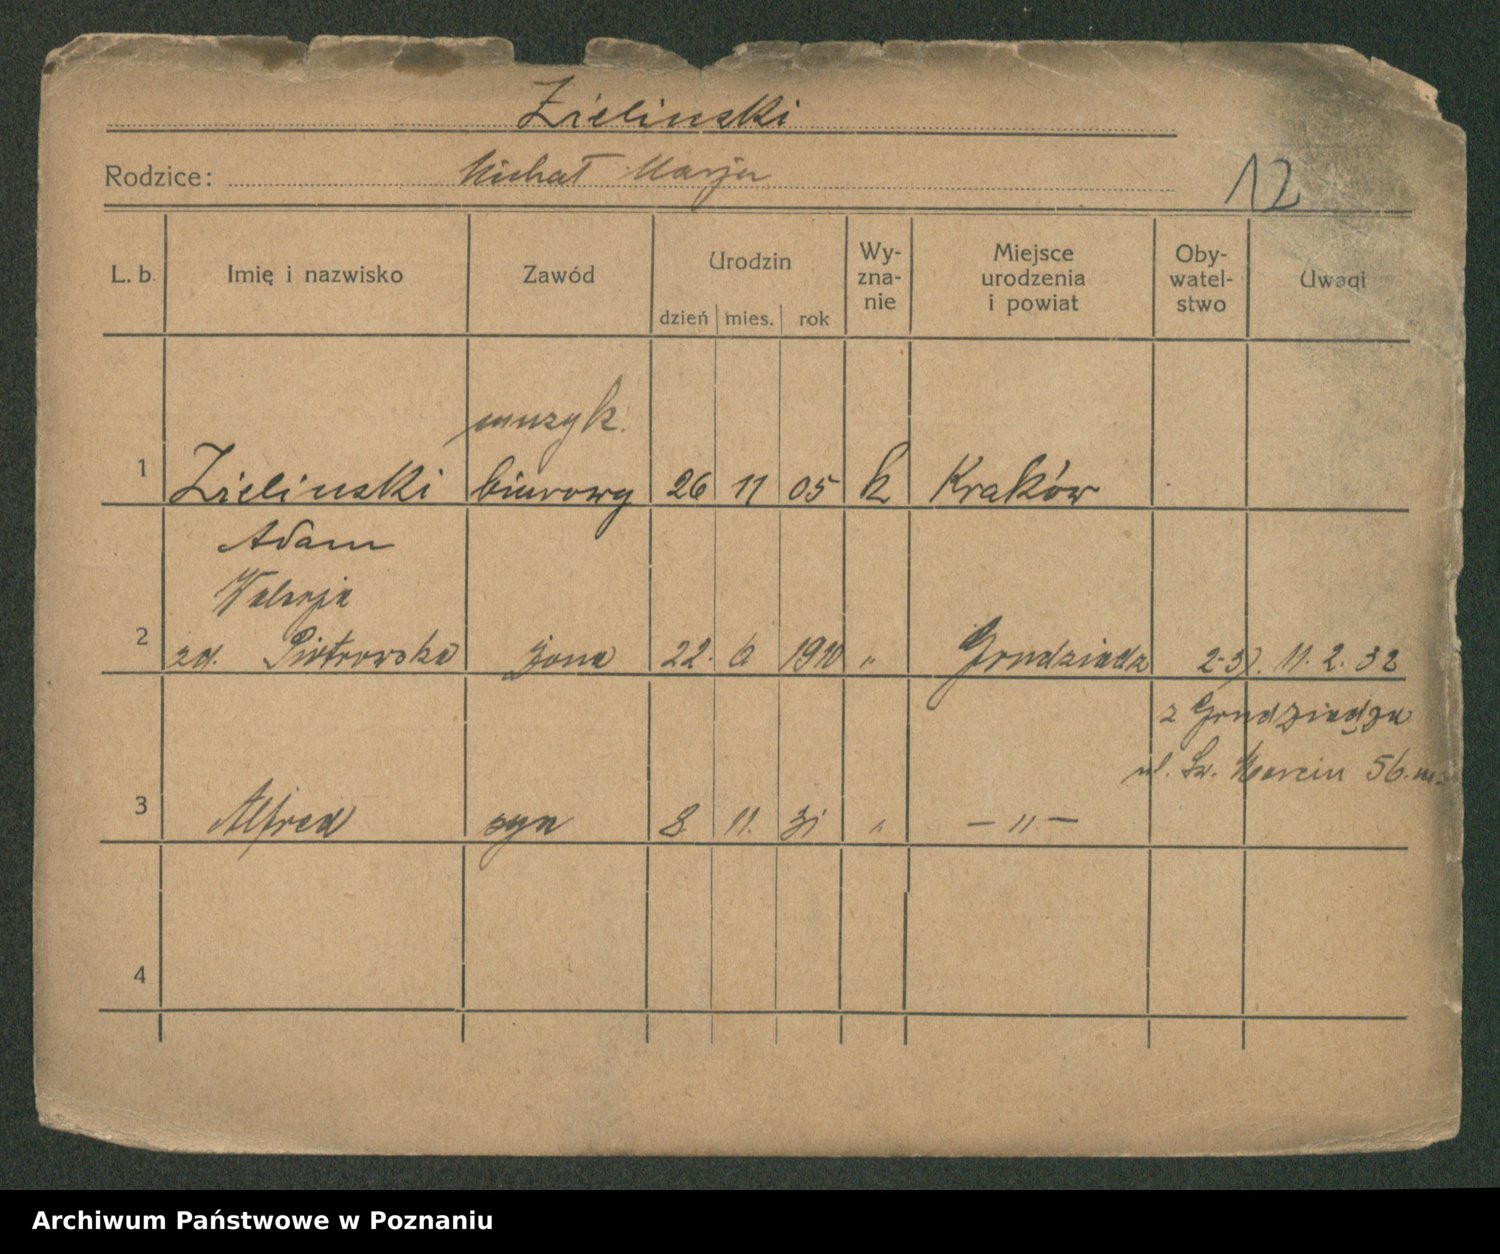 Zielinski
Rodzice: Michał Marja
12
L. b. Imię i nazwisko Zawód Urodzin dzień mies. rok Wy-zna-nie Miejsce urodzenia i powiat Oby-watel-stwo Uwagi
muzyk.
1 Zielinski biurowy 26 11 05 k Kraków
Adam
Walerja
2 zd. Piotrowska żona 22. 6 1910 " Grudziadz 11. 2. 32
z Grudziądza
ul. Św. Marcin 56. m
3 Alfred syn 8 11. 31 " — " —
4
Archiwum Państwowe w Poznaniu